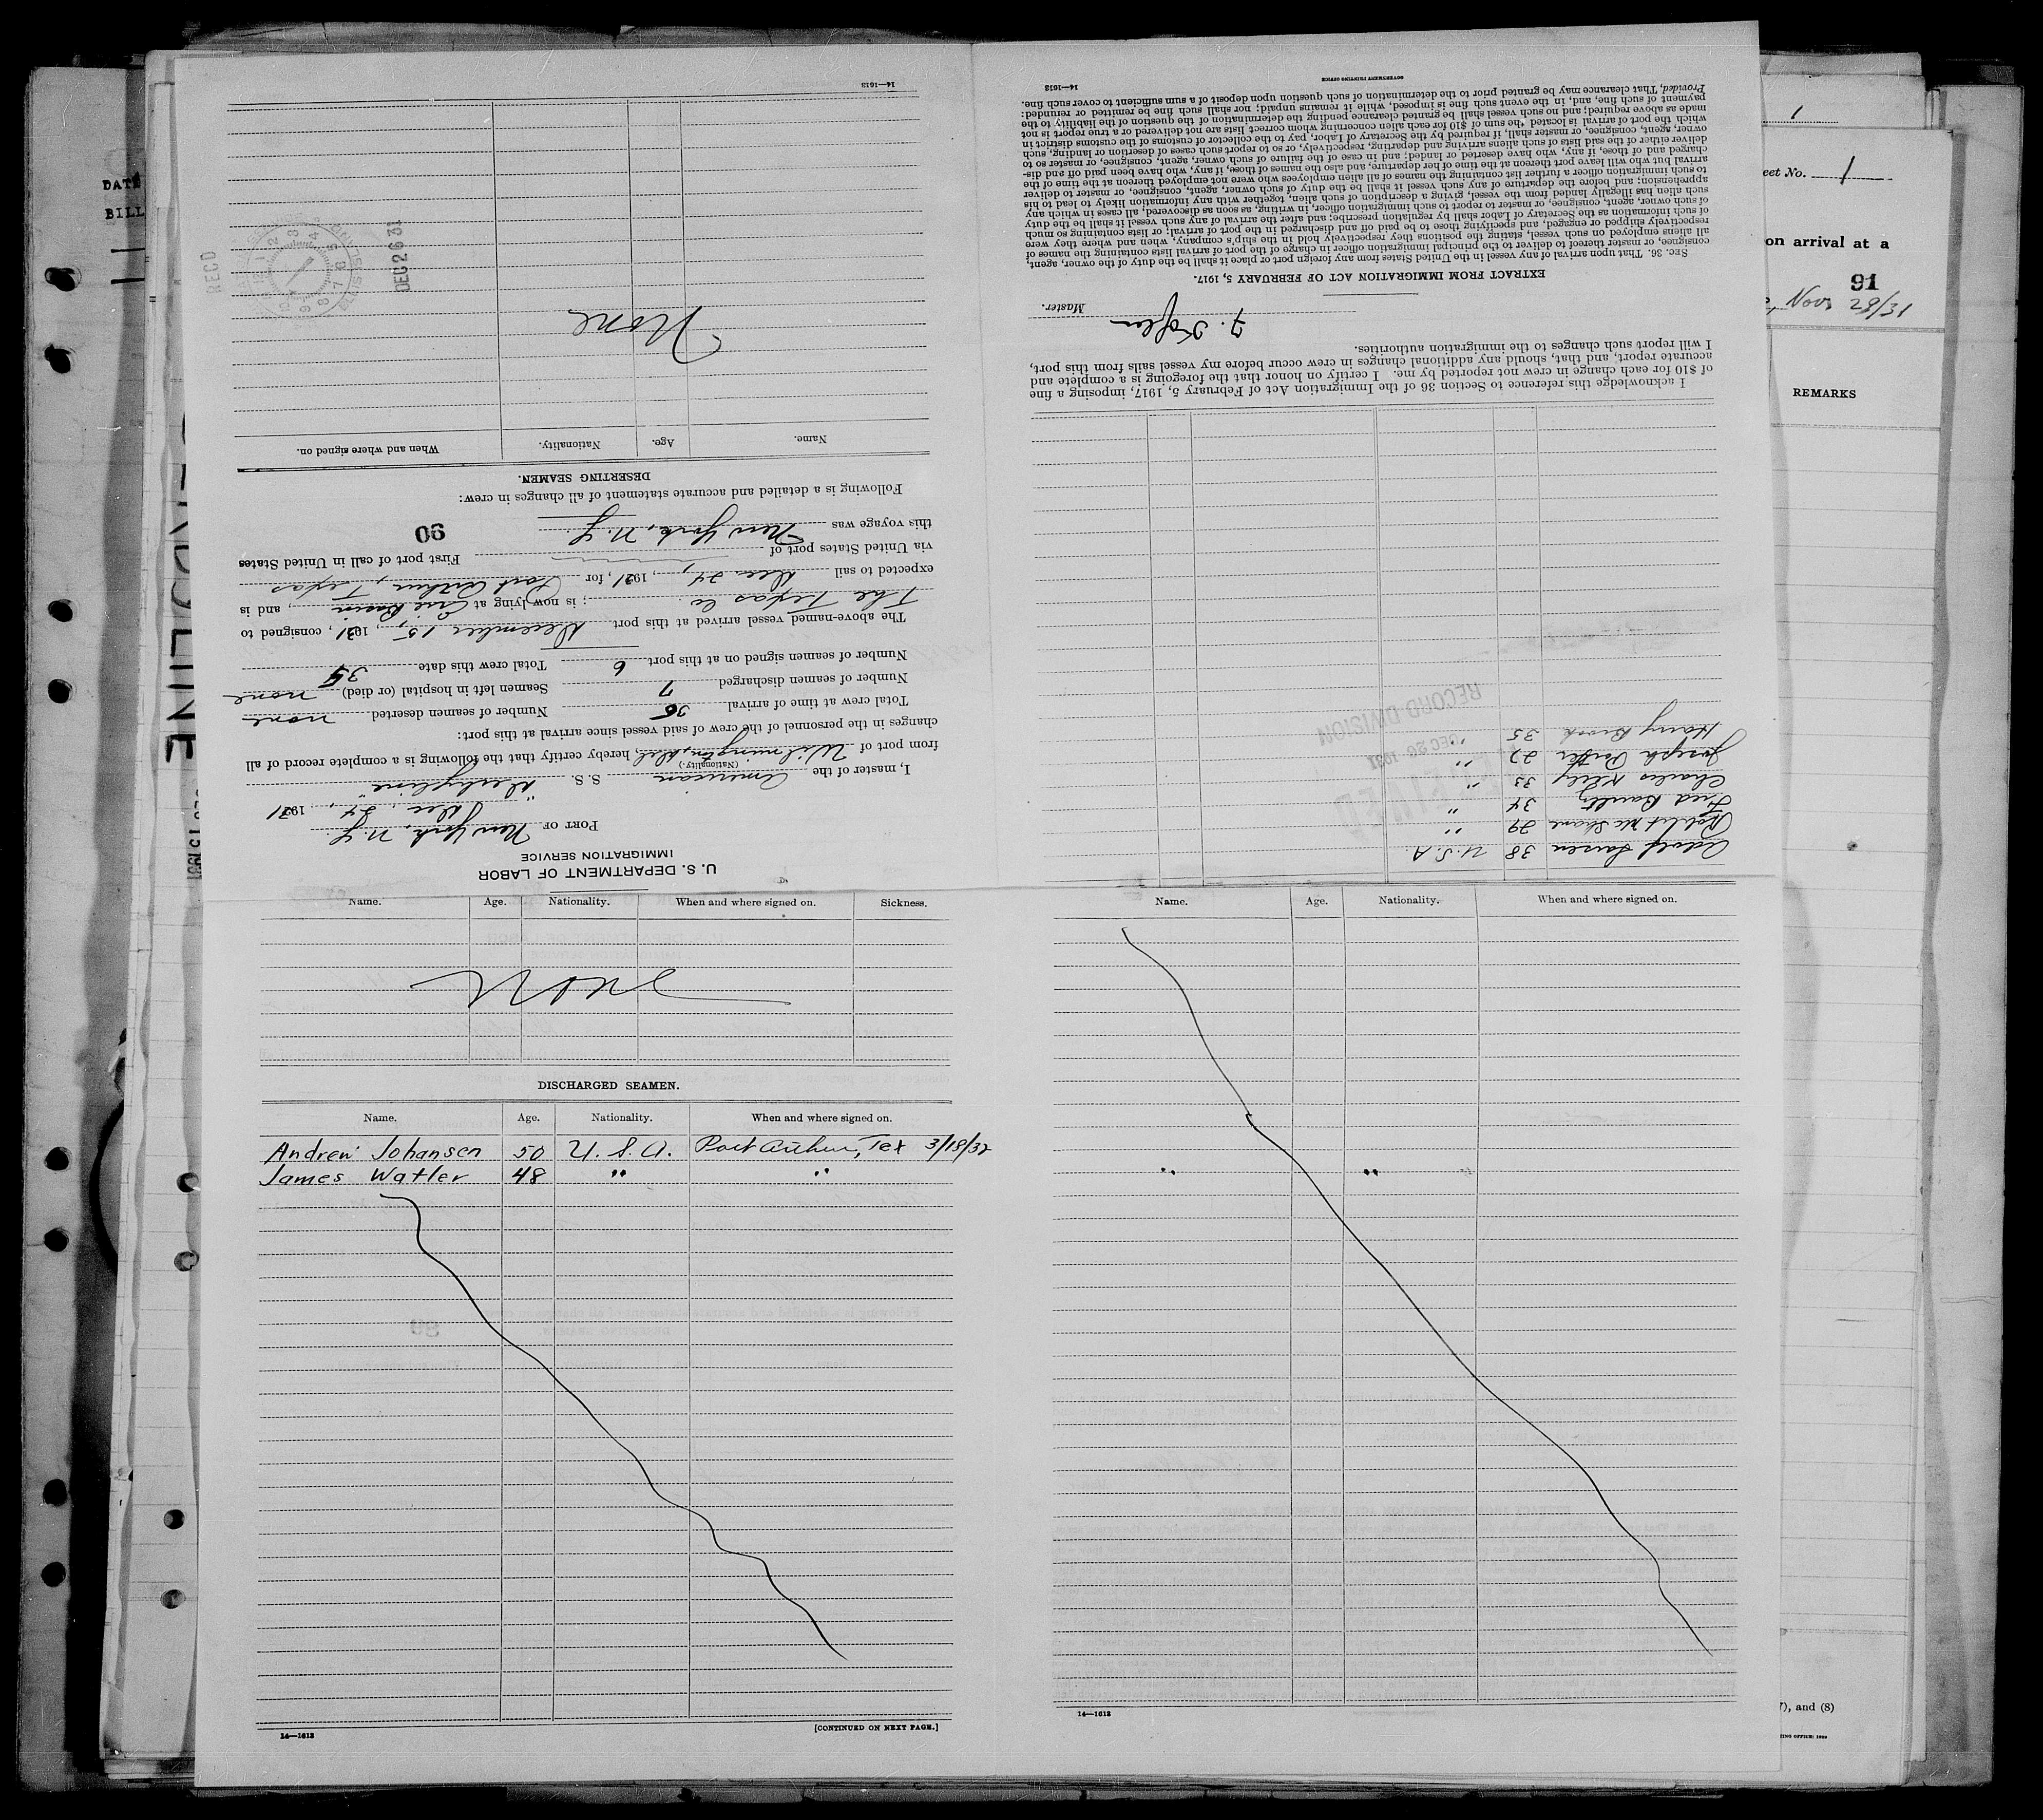 U. S. DEPARTMENT OF LABOR
IMMIGRATION SERVICE
PORT OF New York, N.Y.
Dec. 24, 1931
I, master of the American S. S. "Derbyline"
(Nationality.)
from port of Wilmington, Del, hereby certify that the following is a complete record of all
changes in the personnel of the crew of said vessel since arrival at this port:
Total crew at time of arrival Number of seamen deserted none
Number of seamen discharged 7 Seamen left in hospital (or died) none
Number of seamen signed on at this port 6 Total crew this date
The above-named vessel arrived at this port December 15, 1931, consigned to
The Texas Co. ; is now lying at Erie Basin, and is
expected to sail Dec 24, 1931, for Port Arthur, Texas
via United States port of First port of call in United States
this voyage was New York, N.Y.
90
Following is a detailed and accurate statement of all changes in crew:
DESERTING SEAMEN.
Name. Age. Nationality. When and where signed on.
None
REC'D
DEC 26 31
14—1613
Adolf Larsen 38 U.S.A.
Robert Mc Shane 29 "
Fred 34 "
Charles Kelly 33 "
Joseph 27 "
Harry 35 "
RECEIVED
DEC 26 1931
RECORD DIVISION
I acknowledge this reference to Section 36 of the Immigration Act of February 5, 1917, imposing a fine
of $10 for each change in crew not reported by me. I certify on honor that the foregoing is a complete and
accurate report, and that, should any additional changes in crew occur before my vessel sails from this port,
I will report such changes to the immigration authorities.
Master.
EXTRACT FROM IMMIGRATION ACT OF FEBRUARY 5, 1917.
SEC. 36. That upon arrival of any vessel in the United States from any foreign port or place it shall be the duty of the owner, agent,
consignee, or master thereof to deliver to the principal immigration officer in charge of the port of arrival lists containing the names of
all aliens employed on such vessel, stating the positions they respectively hold in the ship's company, when and where they were
respectively shipped or engaged, and specifying those to be paid off and discharged in the port of arrival; or lists containing so much
of such information as the Secretary of Labor shall by regulation prescribe; and after the arrival of any such vessel it shall be the duty
of such owner, agent, consignee, or master to report to such immigration officer, in writing, as soon as discovered, all cases in which any
such alien has illegally landed from the vessel, giving a description of such alien, together with any information likely to lead to his
apprehension; and before the departure of any such vessel it shall be the duty of such owner, agent, consignee, or master to deliver
to such immigration officer a further list containing the names of all alien employees who were not employed thereon at the time of the
arrival but who will leave port thereon at the time of her departure, and also the names of those, if any, who have been paid off and dis-
charged and of those, if any, who have deserted or landed; and in case of the failure of such owner, agent, consignee, or master so to
deliver either of the said lists of such aliens arriving and departing, respectively, or so to report such cases of desertion or landing, such
owner, agent, consignee, or master shall, if required by the Secretary of Labor, pay to the collector of customs of the customs district in
which the port of arrival is located the sum of $10 for each alien concerning whom correct lists are not delivered or a true report is not
made as above required; and no such vessel shall be granted clearance pending the determination of the question of the liability to the
payment of such fine, and, in the event such fine is imposed, while it remains unpaid; nor shall such fine be remitted or refunded:
Provided, That clearance may be granted prior to the determination of such question upon deposit of a sum sufficient to cover such fine.
14—1613
GOVERNMENT PRINTING OFFICE
Name. Age. Nationality. When and where signed on. Sickness.
None
DISCHARGED SEAMEN.
Name. Age. Nationality. When and where signed on.
Andrew Johansen 50 U.S.A. Port Arthur, Tex 3/18/32
James Watler 48 " "
14—1613
[CONTINUED ON NEXT PAGE.]
Name. Age. Nationality. When and where signed on.
" " "
14—1613
DATE
BILL
1
eet No. 1
on arrival at a
91
Nov 28/31
REMARKS
7), and (8)